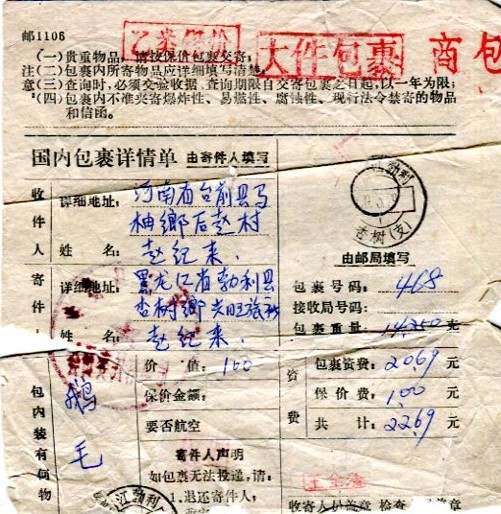 邮1106
乙类保价 大件包裹 商包
(一)贵重物品,请按保价包裹交寄;
注(二)包裹内所寄物品应详细填写清楚;
意(三)查询时,必须交验收据,查询期限自交寄包裹之日起,以一年为限;
(四)包裹内不准夹寄爆炸性、易燃性、腐蚀性、现行法令禁寄的物品
和信函。
国内包裹详情单 由寄件人填写
收件人
详细地址: 河南省台前县马
柚鄉后赵村
姓名: 赵纪来
寄件人
详细地址: 黑龙江省勃利县
杏树鄉
姓名: 赵纪来
江勃利
杏树(支)
由邮局填写
包裹号码: 468
接收局号码:
包裹重量: 14350克
包内装有何物
鹅毛
价值: 100
保价金额:
要否航空
寄件人声明
如包裹无法投递,请:
1.退还寄件人,
资费
包裹资费: 20.69元
保价费: 1.00元
共计: 22.69元
江勃利
收寄人员盖章 检查
员盖章